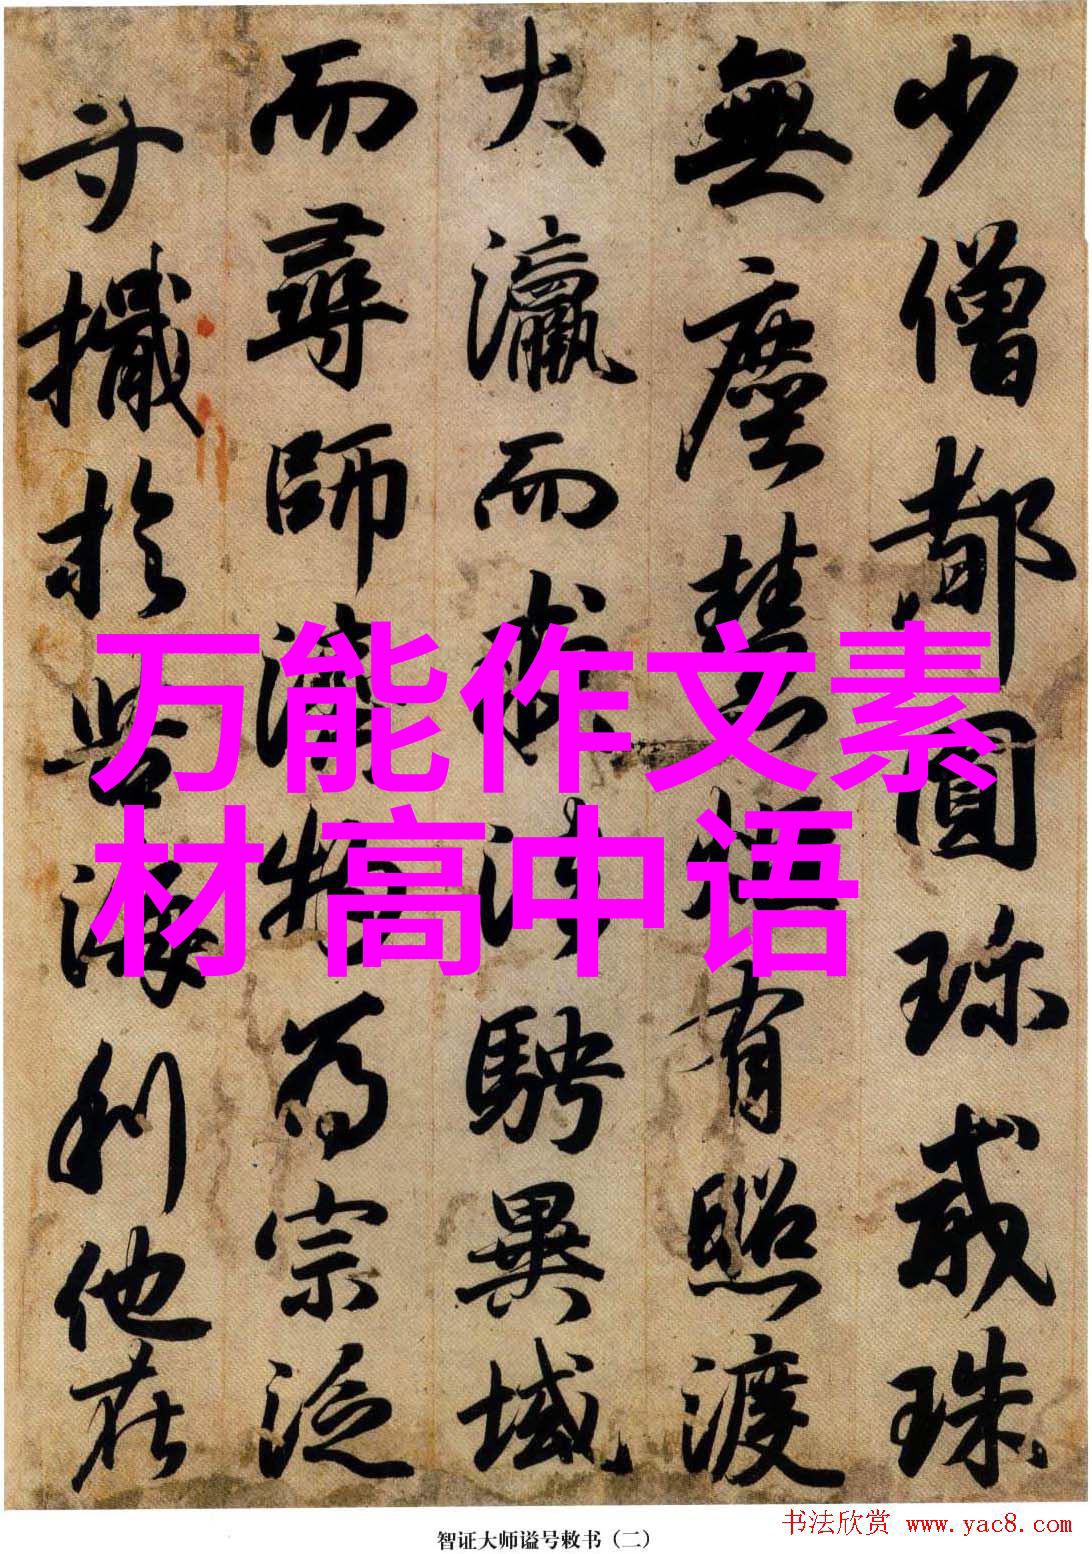 少僧都圓珎戒珠
無塵慧炬有照渡
大瀛而渉騁異域
而尋師濟物為宗泛
於利他在
万能作文素
材 高中语
智证大师谥号敕书（二）
书法欣赏 www.yac8.com